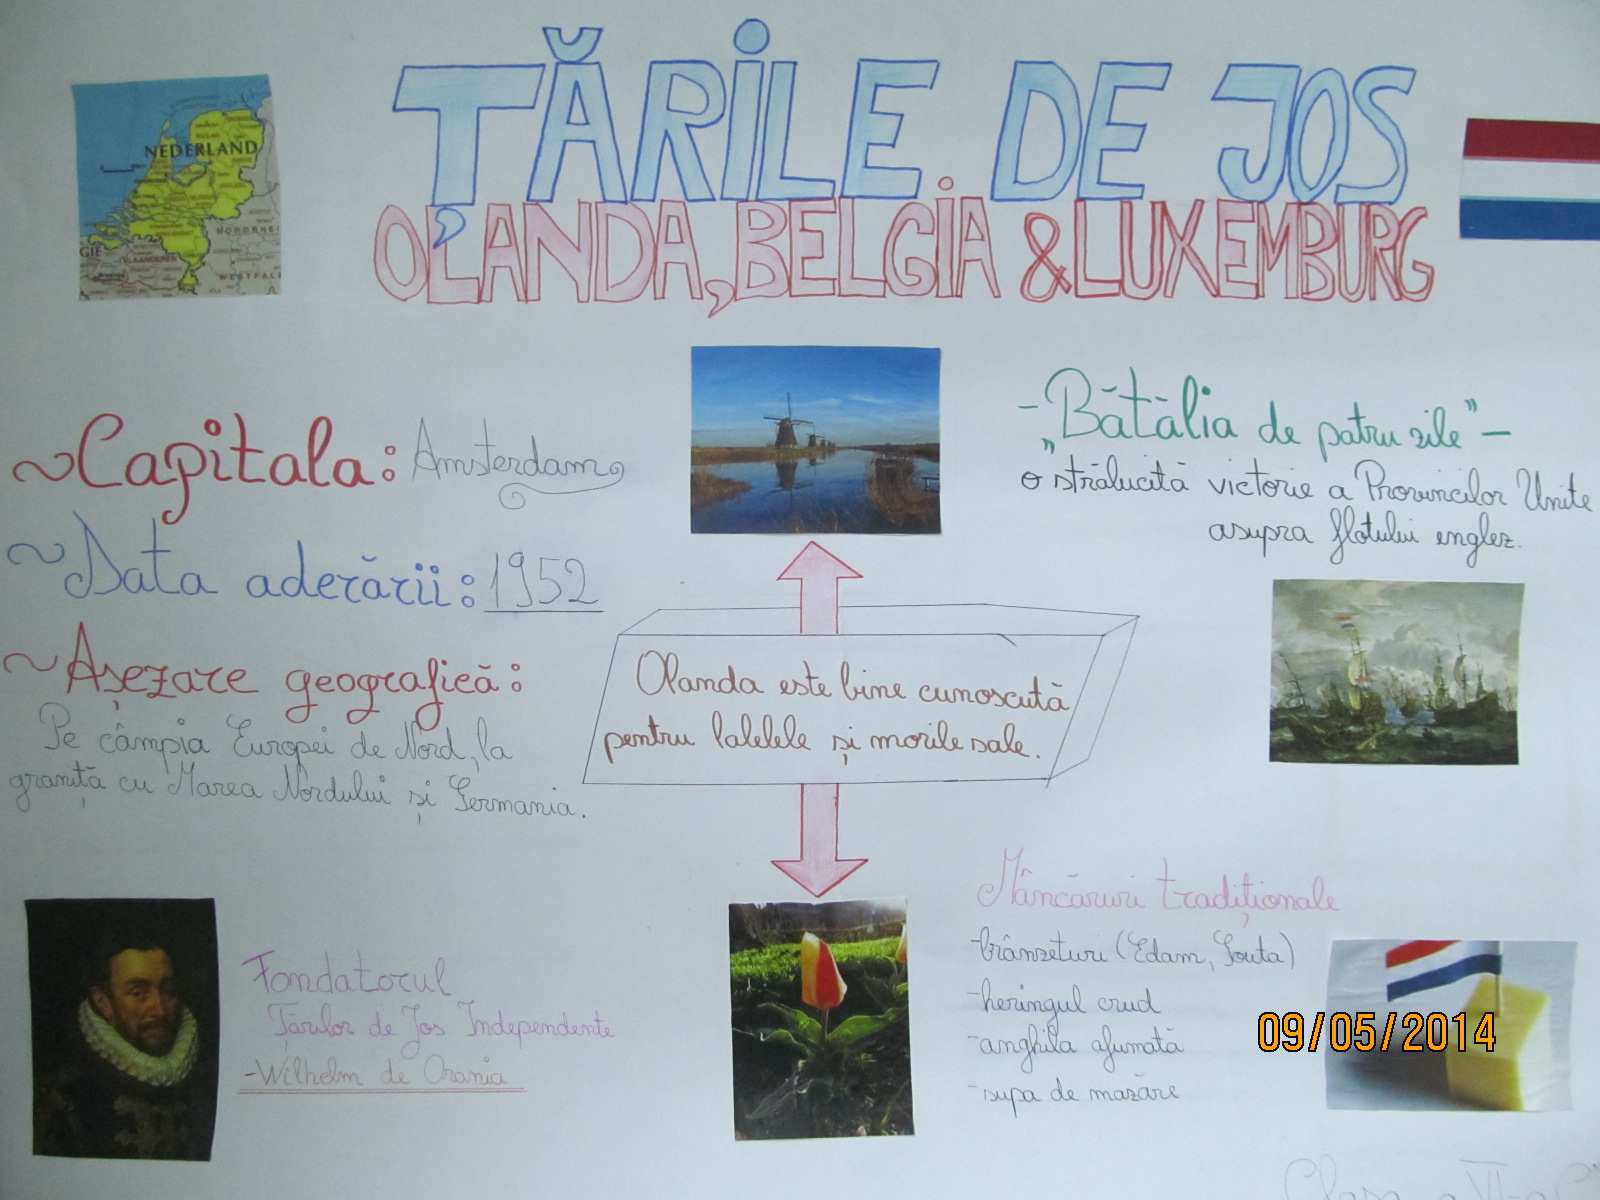 ȚĂRILE DE JOS
OLANDA, BELGIA & LUXEMBURG
NEDERLAND
~Capitala: Amsterdam
~Data aderării: 1952
~Așezare geografică:
Pe câmpia Europei de Nord, la
graniță cu Marea Nordului și Germania.
- „Bătălia de patru zile” -
o strălucită victorie a Provinciilor Unite
asupra flotului englez.
Olanda este bine cunoscută
pentru lalelele și morile sale.
Fondatorul
Țărilor de Jos Independente
-Wilhelm de Orania
Mâncăruri tradiționale
-brânzeturi (Edam, Gouta)
-heringul crud
-anghila afumată
-supa de mazăre
09/05/2014